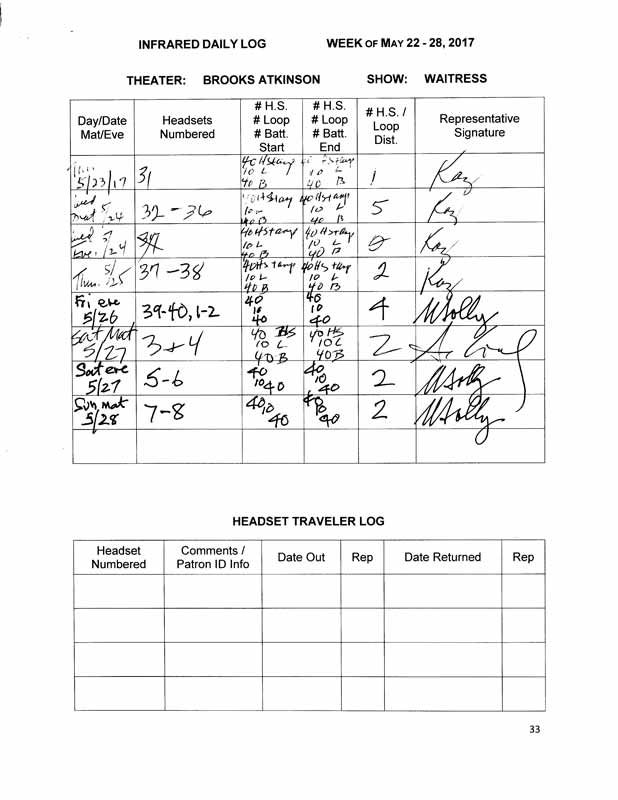 INFRARED DAILY LOG WEEK OF MAY 22 - 28, 2017
THEATER: BROOKS ATKINSON SHOW: WAITRESS
Day/Date Mat/Eve
Headsets Numbered
# H.S. # Loop # Batt. Start
# H.S. # Loop # Batt. End
# H.S. / Loop Dist.
Representative Signature
5/23/17 31 40 HStamp 10 L 40 B 10 L 40 B 1 Kaz
Wed mat 5/24 32 - 36 40 HStamp 10 L 40 B 40 HStamp 10 L 40 B 5 Kaz
Wed Eve. 5/24 40 HStamp 10 L 40 B 40 HStamp 10 L 40 B 0 Kaz
Thur. 5/25 37 - 38 40 HStamp 10 L 40 B 40 HStamp 10 L 40 B 2 Kaz
Fri eve 5/26 39-40, 1-2 40 10 40 40 10 40 4
Sat Mat 5/27 3 + 4 40 HS 10 L 40 B 40 HS 10 L 40 B 2
Sat eve 5/27 5-6 40 10 40 40 10 40 2
Sun mat 5/28 7-8 40 10 40 2
HEADSET TRAVELER LOG
Headset Numbered
Comments / Patron ID Info
Date Out
Rep
Date Returned
Rep
33